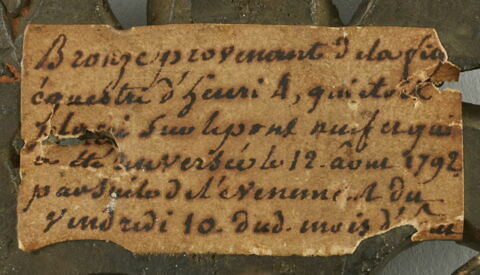 Bronze provenant de la fi
équestre d'henri 4, qui étoit
sur le pont neuf et qui
a été renversée le 12. Août 1792
par suite de l'evenement du
Vendredi 10. dud. mois d'